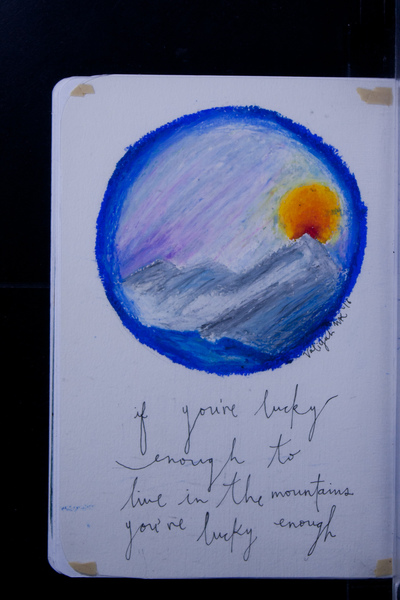 if you're lucky
enough to
live in the mountains
you're lucky enough